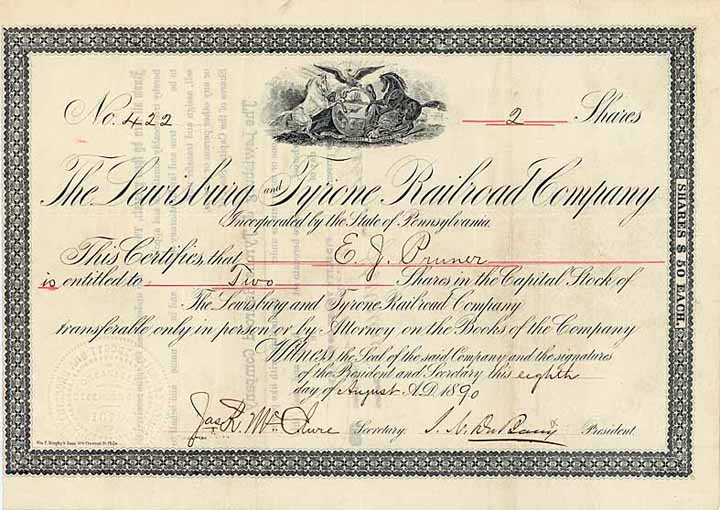 No. 422
2 Shares
The Lewisburg and Tyrone Railroad Company
Incorporated by the State of Pennsylvania.
This Certifies, that E. J. Pruner
is entitled to Two Shares in the Capital Stock of
The Lewisburg and Tyrone Railroad Company
transferable only in person or by Attorney on the Books of the Company
Witness, the Seal of the said Company and the signatures
of the President and Secretary this eighth
day of August A.D. 1890
Jas. R. McClure Secretary. President.
SHARES $ 50 EACH.